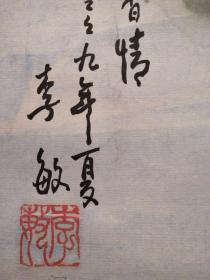 情
九年夏
李敏